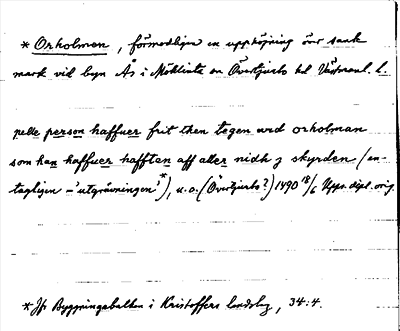 * Orholmen, förmodligen en upphöjning över sank
mark vid byn Ås i Möklinta sn Övertjurbo hd Västmanl. l.
pelle person haffuer frit then tegen wid orholman
som han haffuer hafften aff alter nidh j skyrden (an-
tagligen = 'utgrävningen'*), u.o. (Övertjurbo?) 1490 18/6 Upps. dipl. orig.
* Jfr Byggningabalken i Kristoffers landslag, 34:4.